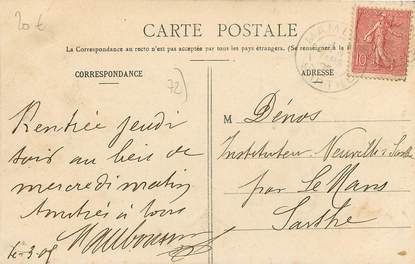 20 €
CARTE POSTALE
La Correspondance au recto n'est pas acceptée par tous les pays étrangers. (Se renseigner à la
CORRESPONDANCE
ADRESSE
72
10
M Dénos
Instituteur Neuville s/ Sarthe
par Le Mans
Sarthe
Rentrée jeudi
soir au lieu de
mercredi matin
Amitiés à tous